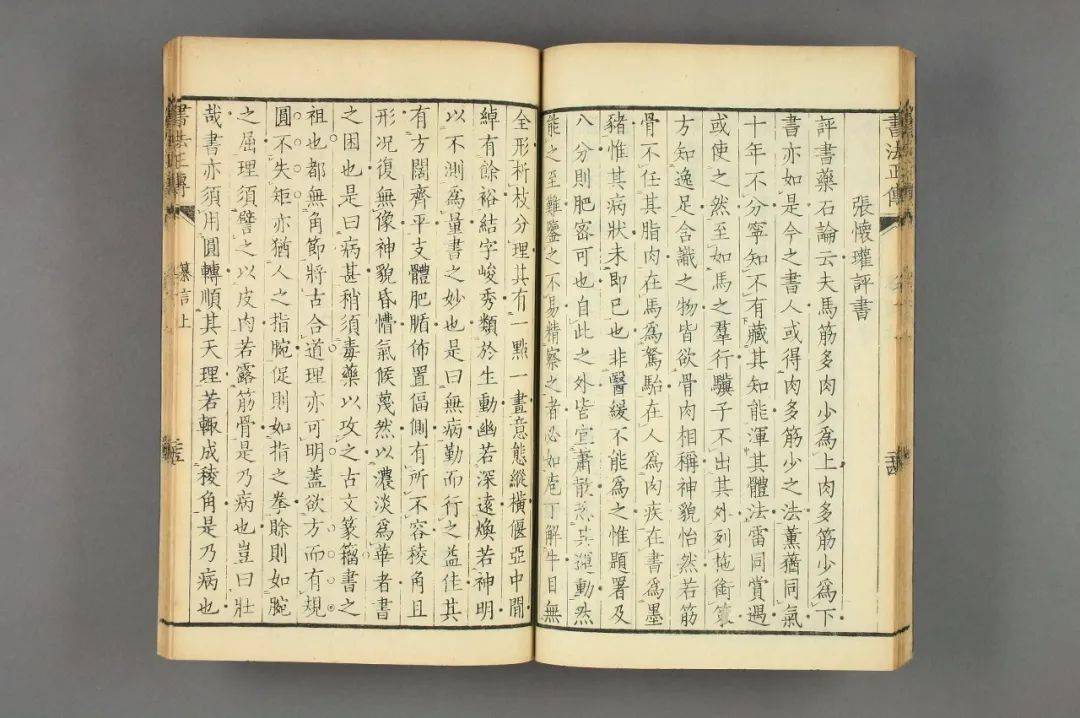 書法正傳
張懷瓘評書
評書藥石論云夫馬筋多肉少爲上肉多筋少爲下
書亦如是今之書人或得肉多筋少之法薰蕕同氣
十年不分寧知不有藏其知能渾其體法雷同賞遇
或使之然至如馬之羣行驥子不出其外列拖銜策
方知逸足含識之物皆欲骨肉相稱神貌怡然若筋
骨不任其脂肉在馬爲駑駘在人爲肉疾在書爲墨
豬惟其病狀未即已也非醫緩不能爲之惟題署及
八分則肥密可也自此之外皆宜肅散恣其運動然
能之至難鑒之不易精察之者必如庖丁解牛目無
全形析枝分理其有一點一畫意態縱橫偃亞中間
綽有餘裕結字峻秀類於生動幽若深遠煥若神明
以不測爲量書之妙也是曰無病勤而行之益佳其
有方闊齊平支體肥腯佈置偪側有所不容稜角且
形况復無像神貌昏懵氣候蔑然以濃淡爲華者書
之困也是曰病甚稍須毒藥以攻之古文篆籀書之
祖也都無角節將古合道理亦可明蓋欲方而有規
圓不失矩亦猶人之指腕促則如指之拳賒則如腕
之屈理須譬之以皮肉若露筋骨是乃病也豈曰壯
哉書亦須用圓轉順其天理若輙成稜角是乃病也
書法正傳
纂言上